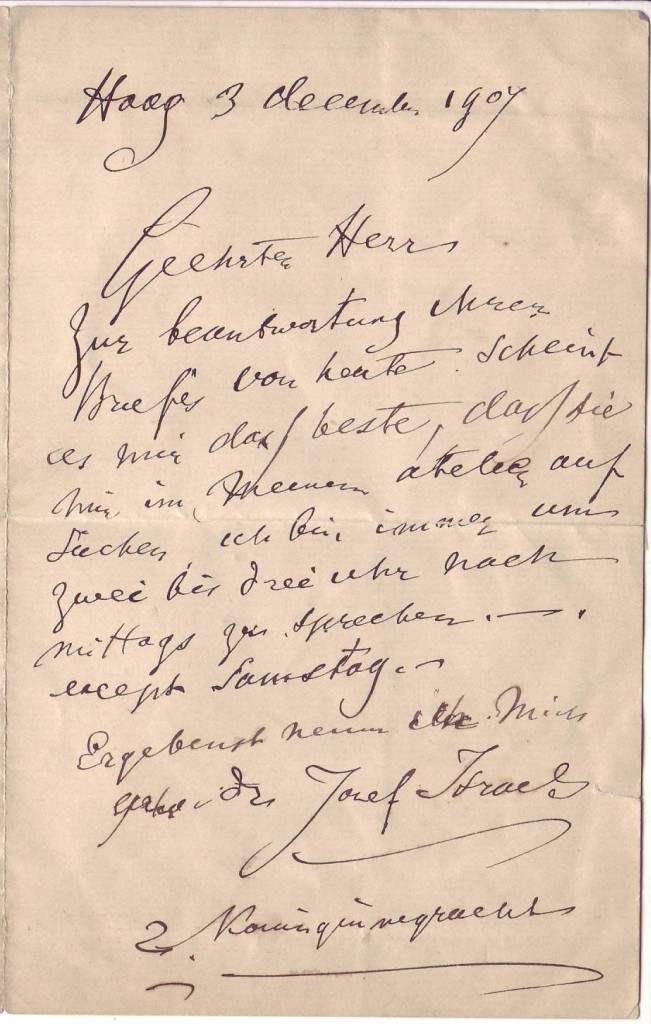 Haag 3 december 1907
Geehrter Herr
Zur beantwortung ihren
Briefes von heute scheint
es mir dass beste, dass sie
mir im meinem atelier auf
suchen, ich bin immer um
zwei bis drei uhr nach
mittags zu sprechen. —.
except Samstag. –
Ergebenst nenn ich mich
Jozef Israels
2. Koninginnegracht